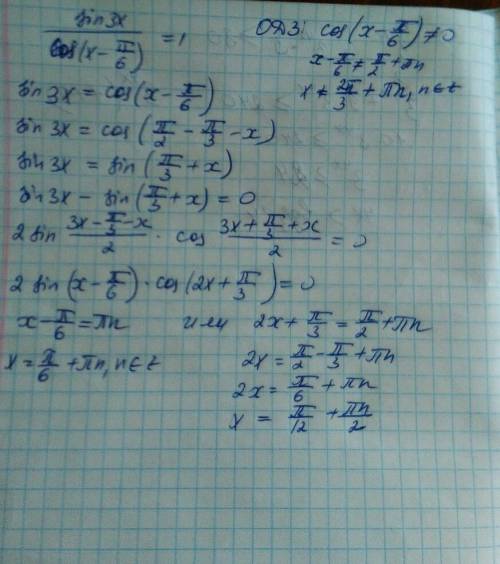 sin3x / cos(x - π/6) = 1
ОДЗ: cos(x - π/6) ≠ 0
x - π/6 ≠ π/2 + πn
x ≠ 2π/3 + πn, n∈z
sin 3x = cos(x - π/6)
sin 3x = cos(π/2 - π/3 - x)
sin 3x = sin(π/3 + x)
sin 3x - sin(π/3 + x) = 0
2 sin (3x - π/3 - x)/2 · cos (3x + π/3 + x)/2 = 0
2 sin(x - π/6) · cos(2x + π/3) = 0
x - π/6 = πn или 2x + π/3 = π/2 + πn
x = π/6 + πn, n∈z
2x = π/2 - π/3 + πn
2x = π/6 + πn
x = π/12 + πn/2